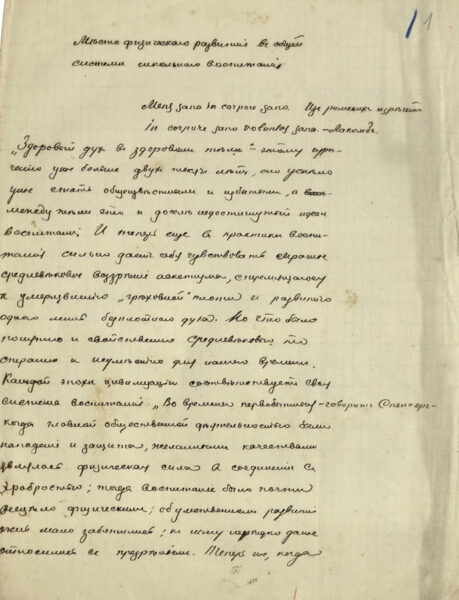 1
Место физическаго развития въ общей
системѣ школьнаго воспитания
Mens sana in corpore sano. Изъ римскихъ
in corpore sano voluntas sana. - Лакомбъ.
„Здоровый духъ въ здоровомъ тѣлѣ" - этому
уже больше двухъ тысячъ лѣтъ, оно успѣло
уже стать общеизвѣстнымъ и избитымъ, а
между тѣмъ это и доселѣ недостигнутый идеалъ
воспитания. И теперь еще въ практикѣ воспи-
тания сильно даетъ себя чувствовать
средневѣковое воззрѣние аскетизма, стремящагося
къ умерщвлению „грѣховной" плоти и развитию
одного лишь безплотнаго духа. Но что было
и свойственно средневѣковью, то
странно и неумѣстно для нашего времени.
Каждой эпохѣ цивилизации соотвѣтствуетъ своя
система воспитания. „Во времена первобытныя - говоритъ Спенсеръ -
когда главной общественной дѣятельностью были
нападение и защита, желаемыми качествами
являлась физическая сила въ соединении съ
храбростью; тогда воспитание было почти
всецѣло физическимъ; объ умственномъ развитии
очень мало заботились; къ нему нерѣдко даже
относились съ презрѣниемъ. Теперь же, когда